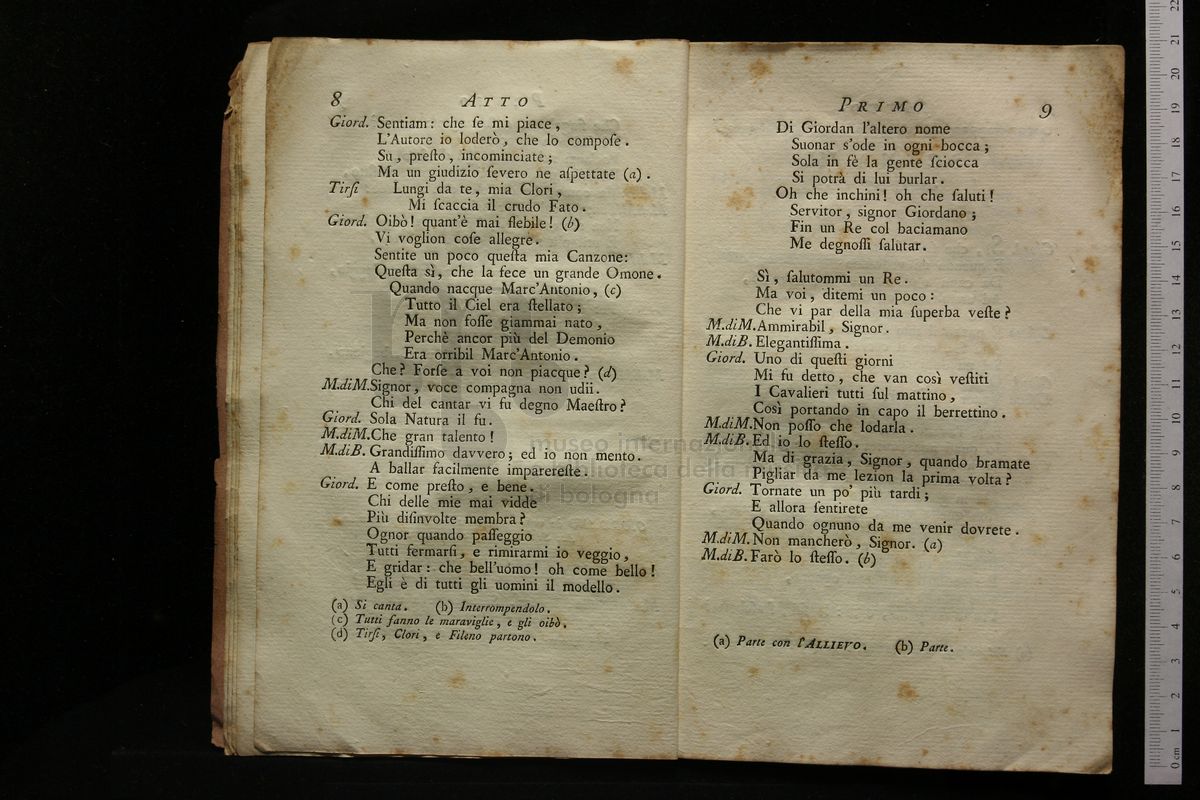 8 ATTO
Giord. Sentiam: che ſe mi piace,
L'Autore io loderò, che lo compoſe.
Su, preſto, incominciate;
Ma un giudizio ſevero ne aſpettate (a).
Tirſi Lungi da te, mia Clori,
Mi ſcaccia il crudo Fato.
Giord. Oibò! quant'è mai flebile! (b)
Vi voglion coſe allegre.
Sentite un poco queſta mia Canzone:
Queſta sì, che la fece un grande Omone.
Quando nacque Marc'Antonio, (c)
Tutto il Ciel era ſtellato;
Ma non foſſe giammai nato,
Perchè ancor più del Demonio
Era orribil Marc'Antonio.
Che? Forſe a voi non piacque? (d)
M.diM. Signor, voce compagna non udii.
Chi del cantar vi fu degno Maeſtro?
Giord. Sola Natura il fu.
M.diM. Che gran talento!
M.diB. Grandiſſimo davvero; ed io non mento.
A ballar facilmente imparereſte.
Giord. E come preſto, e bene.
Chi delle mie mai vidde
Più diſinvolte membra?
Ognor quando paſſeggio
Tutti fermarſi, e rimirarmi io veggio,
E gridar: che bell'uomo! oh come bello!
Egli è di tutti gli uomini il modello.
(a) Si canta. (b) Interrompendolo.
(c) Tutti fanno le maraviglie, e gli oibò.
(d) Tirſi, Clori, e Fileno partono.
PRIMO 9
Di Giordan l'altero nome
Suonar s'ode in ogni bocca;
Sola in fè la gente ſciocca
Si potrà di lui burlar.
Oh che inchini! oh che ſaluti!
Servitor, signor Giordano;
Fin un Re col baciamano
Me degnoſſi ſalutar.
Sì, ſalutommi un Re.
Ma voi, ditemi un poco:
Che vi par della mia ſuperba veſte?
M.diM. Ammirabil, Signor.
M.diB. Elegantiſſima.
Giord. Uno di queſti giorni
Mi fu detto, che van così veſtiti
I Cavalieri tutti ſul mattino,
Così portando in capo il berrettino.
M.diM. Non poſſo che lodarla.
M.diB. Ed io lo ſteſſo.
Ma di grazia, Signor, quando bramate
Pigliar da me lezion la prima volta?
Giord. Tornate un po' più tardi;
E allora ſentirete
Quando ognuno da me venir dovrete.
M.diM. Non mancherò, Signor. (a)
M.diB. Farò lo ſteſſo. (b)
(a) Parte con l'ALLIEVO. (b) Parte.
museo internazionale
biblioteca della musica
di bologna
0 cm 1 2 3 4 5 6 7 8 9 10 11 12 13 14 15 16 17 18 19 20 21 22